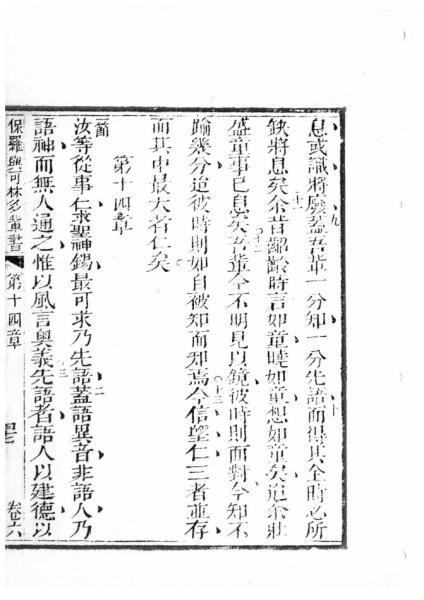 息或識將廢蓋吾輩一分知一分先語而得其全時必所
九
十
缺將息矣余昔齠齡時言如童曉如童想如童矣迨余壯
十一
盛童事已息矣吾輩今不明見以鏡彼時則面對今知不
十二
踰幾分迨彼時則如自被知而知焉今信望仁三者並存
十三
而其中最大者仁矣
第十四章
一節
汝等從事仁求聖神錫最可求乃先語蓋語異音非語人乃
二
語神而無人通之惟以風言奧義先語者語人以建德以
三
保羅與可林多輩書
第十四章
卷六